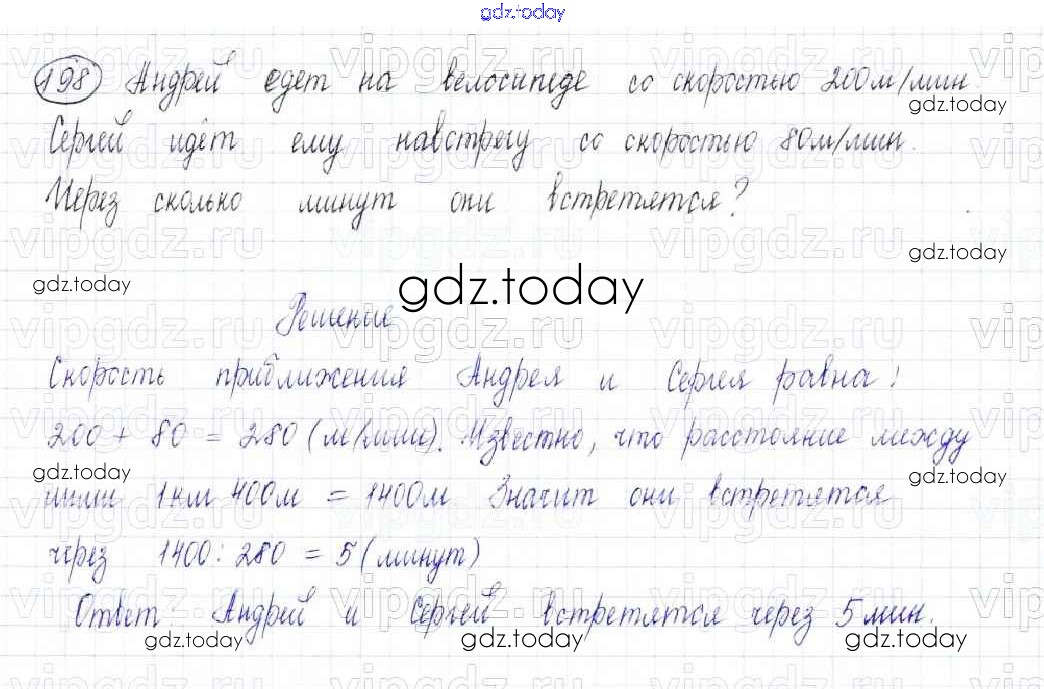 gdz.today
198 Андрей едет на велосипеде со скоростью 200м/мин
gdz.today
Сергей идёт ему навстречу со скоростью 80м/мин.
Через сколько минут они встретятся?
gdz.today
gdz.today
gdz.today
Решение
Скорость приближения Андрея и Сергея равна:
200 + 80 = 280 (м/мин). Известно, что расстояние между
gdz.today gdz.today
ними 1км 400м = 1400м. Значит они встретятся
через 1400 : 280 = 5 (минут)
Ответ: Андрей и Сергей встретятся через 5 мин.
gdz.today gdz.today gdz.today
vipgdz.ru